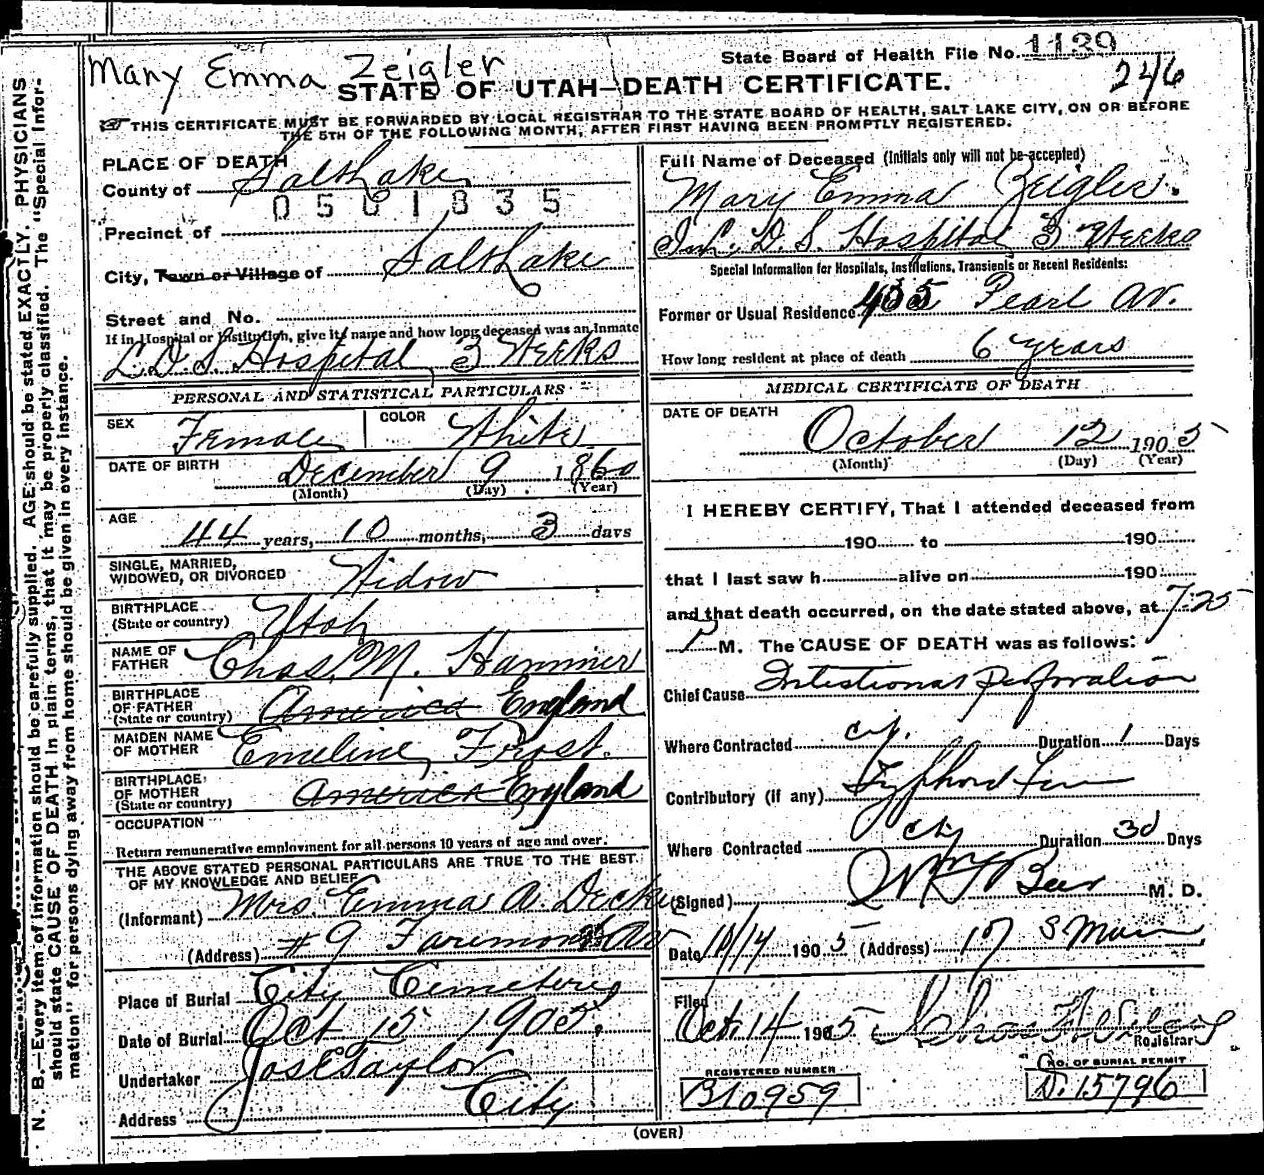 Mary Emma Zeigler
State Board of Health File No. 1129
246
STATE OF UTAH—DEATH CERTIFICATE.
THIS CERTIFICATE MUST BE FORWARDED BY LOCAL REGISTRAR TO THE STATE BOARD OF HEALTH, SALT LAKE CITY, ON OR BEFORE
THE 5TH OF THE FOLLOWING MONTH, AFTER FIRST HAVING BEEN PROMPTLY REGISTERED.
N. B.—Every item of information should be carefully supplied. AGE should be stated EXACTLY. PHYSICIANS
should state CAUSE OF DEATH in plain terms, that it may be properly classified. The "Special Infor-
mation" for persons dying away from home should be given in every instance.
PLACE OF DEATH
County of Salt Lake
0501835
Precinct of
City, Town or Village of Salt Lake
Street and No.
If in Hospital or Institution, give its name and how long deceased was an inmate
L.D.S. Hospital, 3 Weeks
PERSONAL AND STATISTICAL PARTICULARS
SEX Female COLOR White
DATE OF BIRTH December 9 1860
(Month) (Day) (Year)
AGE 44 years, 10 months, 3 days
SINGLE, MARRIED,
WIDOWED, OR DIVORCED Widow
BIRTHPLACE
(State or country) Utah
NAME OF
FATHER Chas. M. Hammer
BIRTHPLACE
OF FATHER
(State or country) America England
MAIDEN NAME
OF MOTHER Emeline Frost.
BIRTHPLACE
OF MOTHER
(State or country) America England
OCCUPATION
Return remunerative employment for all persons 10 years of age and over.
THE ABOVE STATED PERSONAL PARTICULARS ARE TRUE TO THE BEST
OF MY KNOWLEDGE AND BELIEF
(Informant) Mrs. Emma A. Decker
(Address) #9
Place of Burial City Cemetery
Date of Burial Oct 15 1905.
Undertaker Jos E Taylor
Address City
Full Name of Deceased (Initials only will not be accepted)
Mary Emma Zeigler.
In L. D. S. Hospital 3 Weeks
Special Information for Hospitals, Institutions, Transients or Recent Residents:
Former or Usual Residence 435 Pearl Av.
How long resident at place of death 6 years
MEDICAL CERTIFICATE OF DEATH
DATE OF DEATH
October 12 1905
(Month) (Day) (Year)
I HEREBY CERTIFY, That I attended deceased from
190 to 190
that I last saw h alive on 190
and that death occurred, on the date stated above, at 7:25
P M. The CAUSE OF DEATH was as follows:
Chief Cause Intestional Perforation
Where Contracted city. Duration 1 Days
Contributory (if any) Typhoid Fever
Where Contracted city Duration 30 Days
(Signed) M. D.
Date 10/14 1905 (Address) 17 S Main
Filed
Oct. 14 1905
Registrar
REGISTERED NUMBER
B10959
NO. OF BURIAL PERMIT
D. 15796
(OVER)